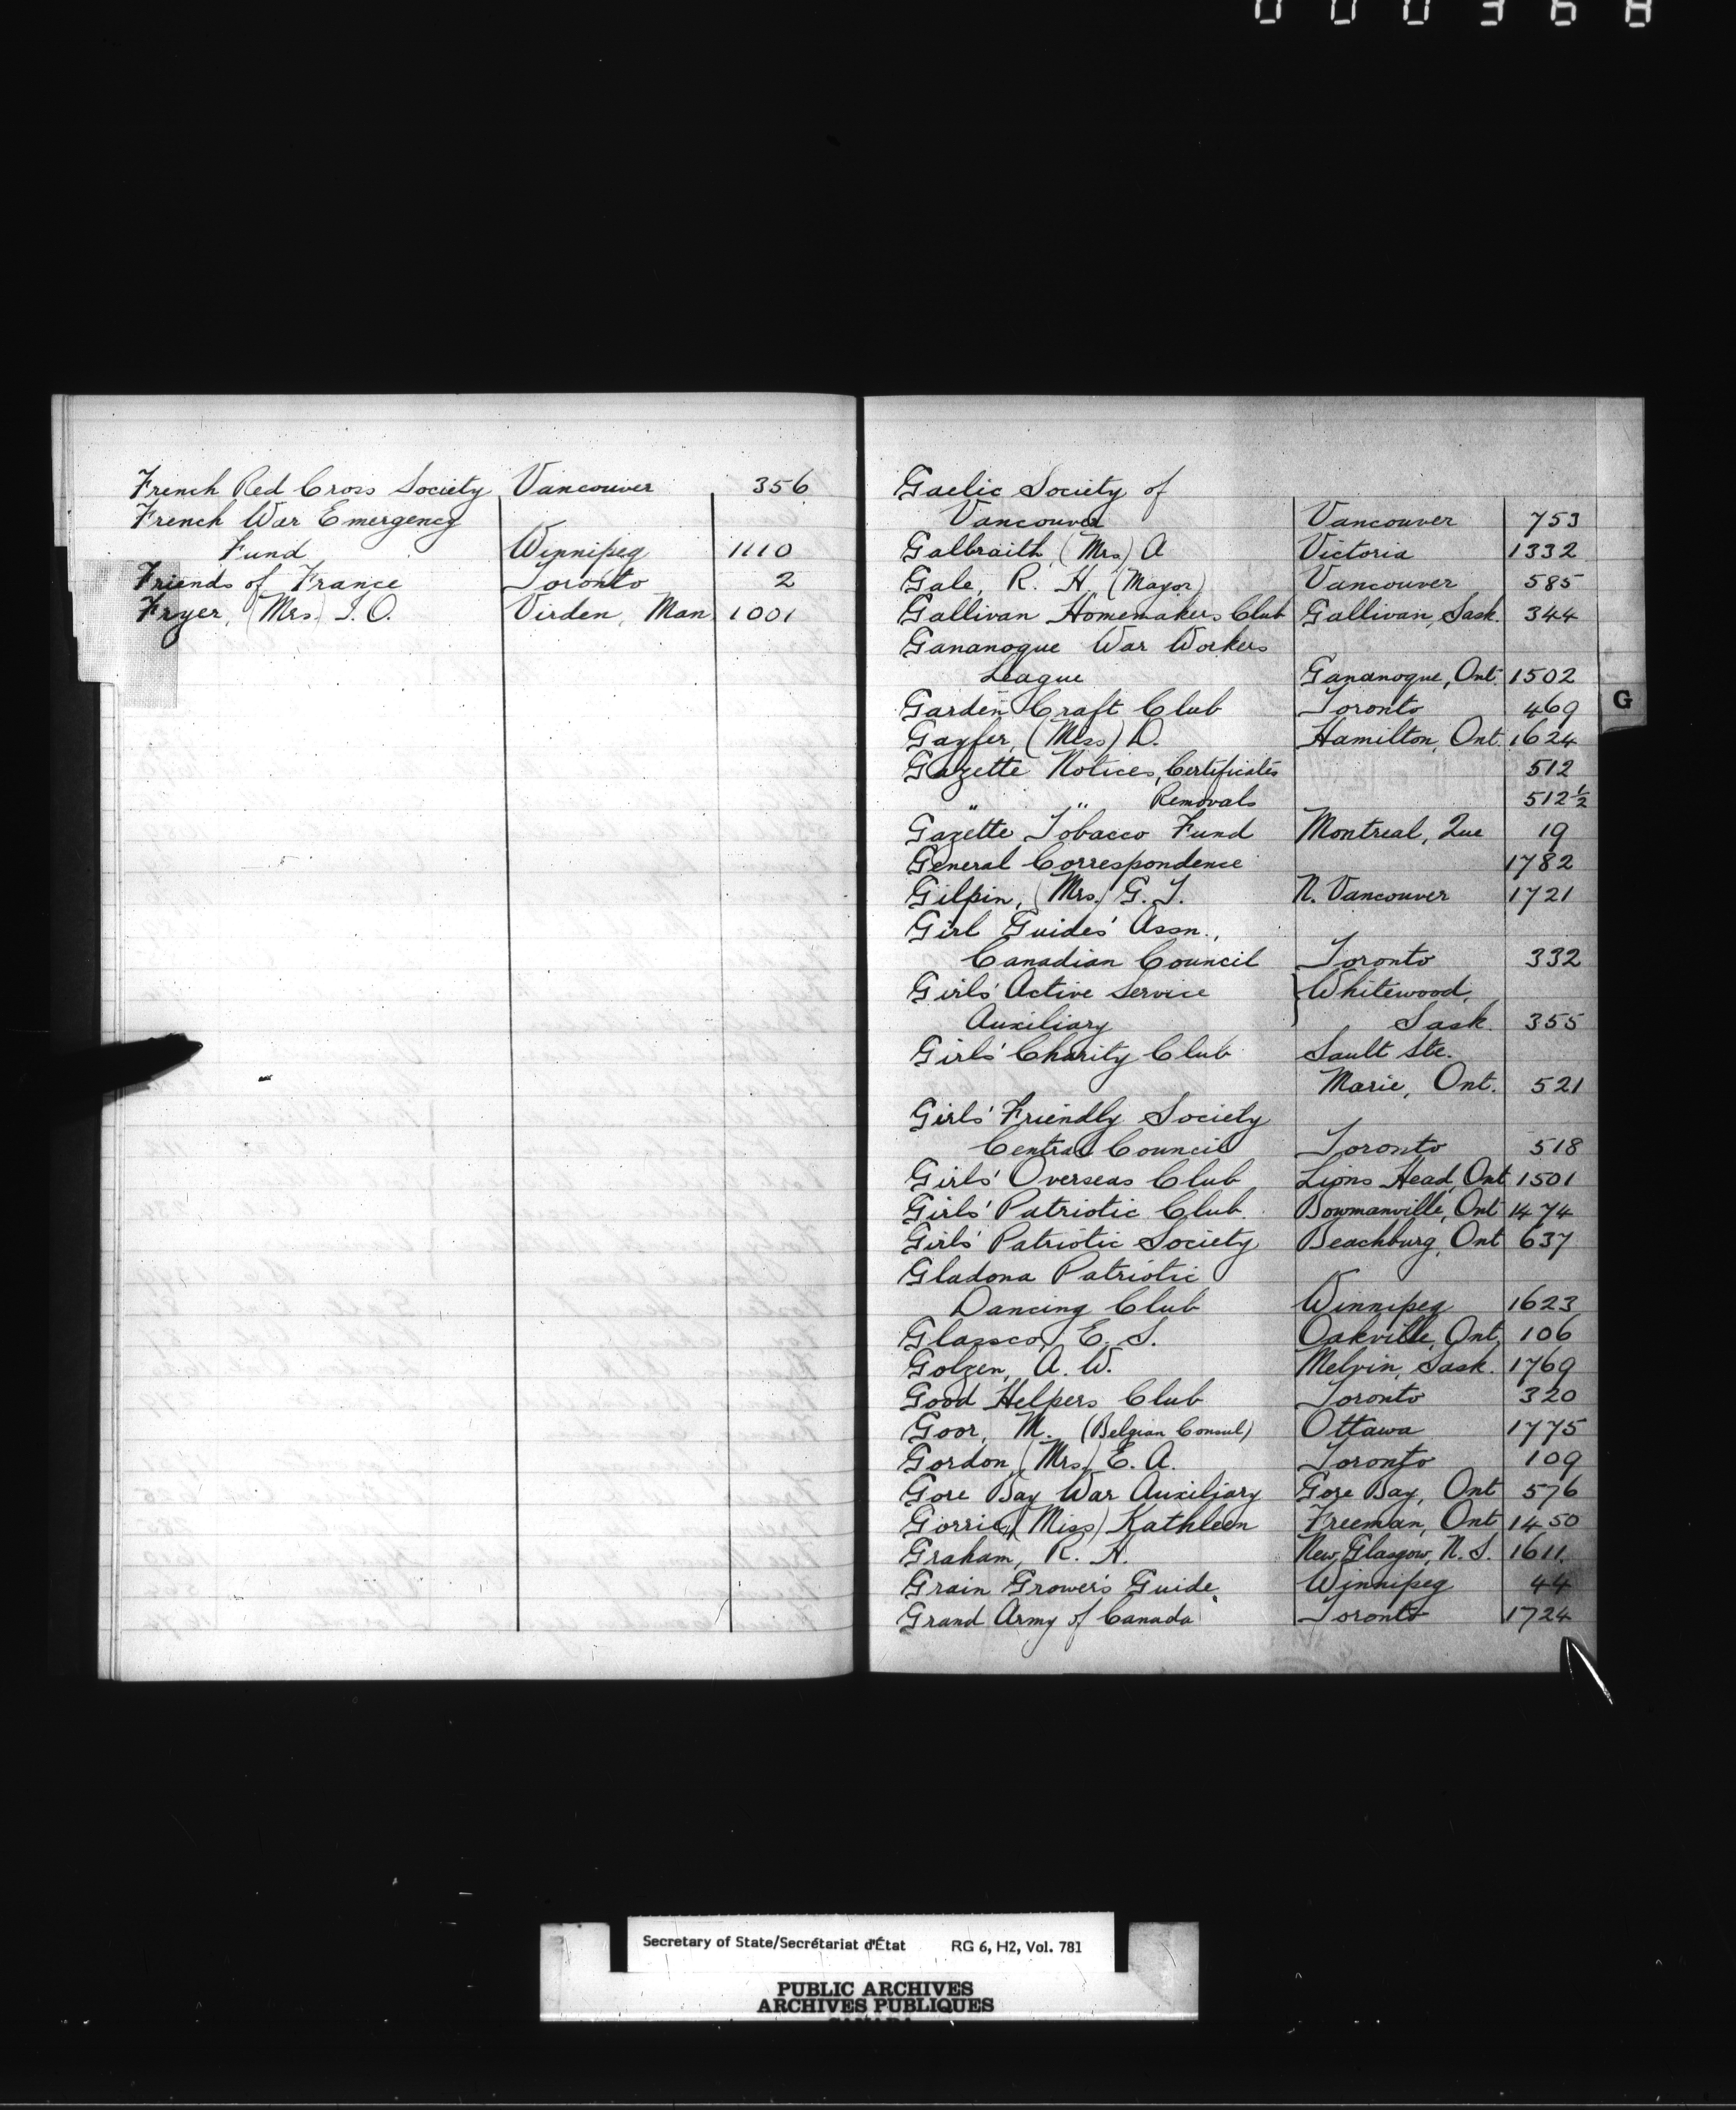 000368
French Red Cross Society Vancouver 356
French War Emergency
Fund Winnipeg 1110
Friends of France Toronto 2
Fryer, (Mrs.) T. O. Virden, Man. 1001
Gaelic Society of
Vancouver Vancouver 753
Galbraith, (Mrs) A Victoria 1332
Gale, R. H. (Mayor) Vancouver 585
Gallivan Homemakers Club Gallivan, Sask. 344
Gananoque War Workers
League Gananoque, Ont. 1502
Garden Craft Club Toronto 469
Gayfer, (Miss) D. Hamilton, Ont. 1624
Gazette Notices, Certificates 512
" " Removals 512½
Gazette Tobacco Fund Montreal, Que 19
General Correspondence 1782
Gilpin, (Mrs.) G. T. N. Vancouver 1721
Girl Guides' Assn.,
Canadian Council Toronto 332
Girls' Active Service } Whitewood,
Auxiliary Sask. 355
Girls' Charity Club Sault Ste.
Marie, Ont. 521
Girls' Friendly Society
Central Council Toronto 518
Girls' Overseas Club Lions Head, Ont 1501
Girls' Patriotic Club Bowmanville, Ont 1474
Girls' Patriotic Society Beachburg, Ont 637
Gladona Patriotic
Dancing Club Winnipeg 1623
Glassco, E. S. Oakville, Ont. 106
Golzen, A. W. Melvin, Sask. 1769
Good Helpers Club Toronto 320
Goor, M. (Belgian Consul) Ottawa 1775
Gordon, (Mrs.) E. A. Toronto 109
Gore Bay War Auxiliary Gore Bay, Ont 576
Gorrie, (Miss) Kathleen Freeman, Ont 1450
Graham, R. H. New Glasgow, N. S. 1611
Grain Grower's Guide Winnipeg 44
Grand Army of Canada Toronto 1724
G
Secretary of State/Secrétariat d'État RG 6, H2, Vol. 781
PUBLIC ARCHIVES
ARCHIVES PUBLIQUES